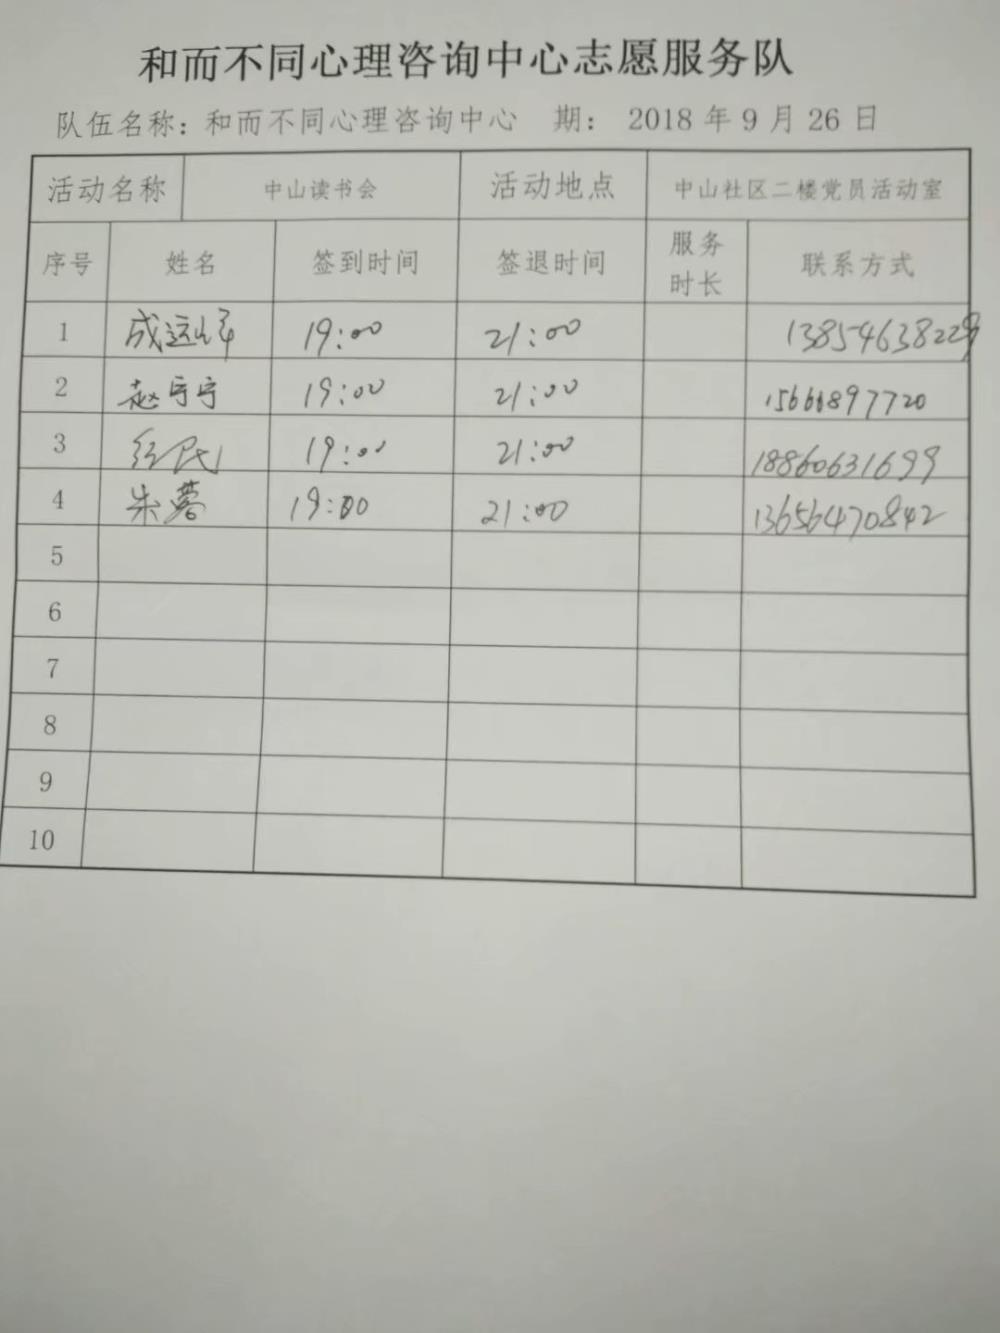 和而不同心理咨询中心志愿服务队
队伍名称：和而不同心理咨询中心 期： 2018 年 9 月 26 日
活动名称 中山读书会 活动地点 中山社区二楼党员活动室
序号 姓名 签到时间 签退时间 服务时长 联系方式
1 19:00 21:00 13854638229
2 赵宁宁 19:00 21:00 15666897720
3 19:00 21:00 18860631699
4 朱蓉 19:00 21:00 13656470842
5
6
7
8
9
10